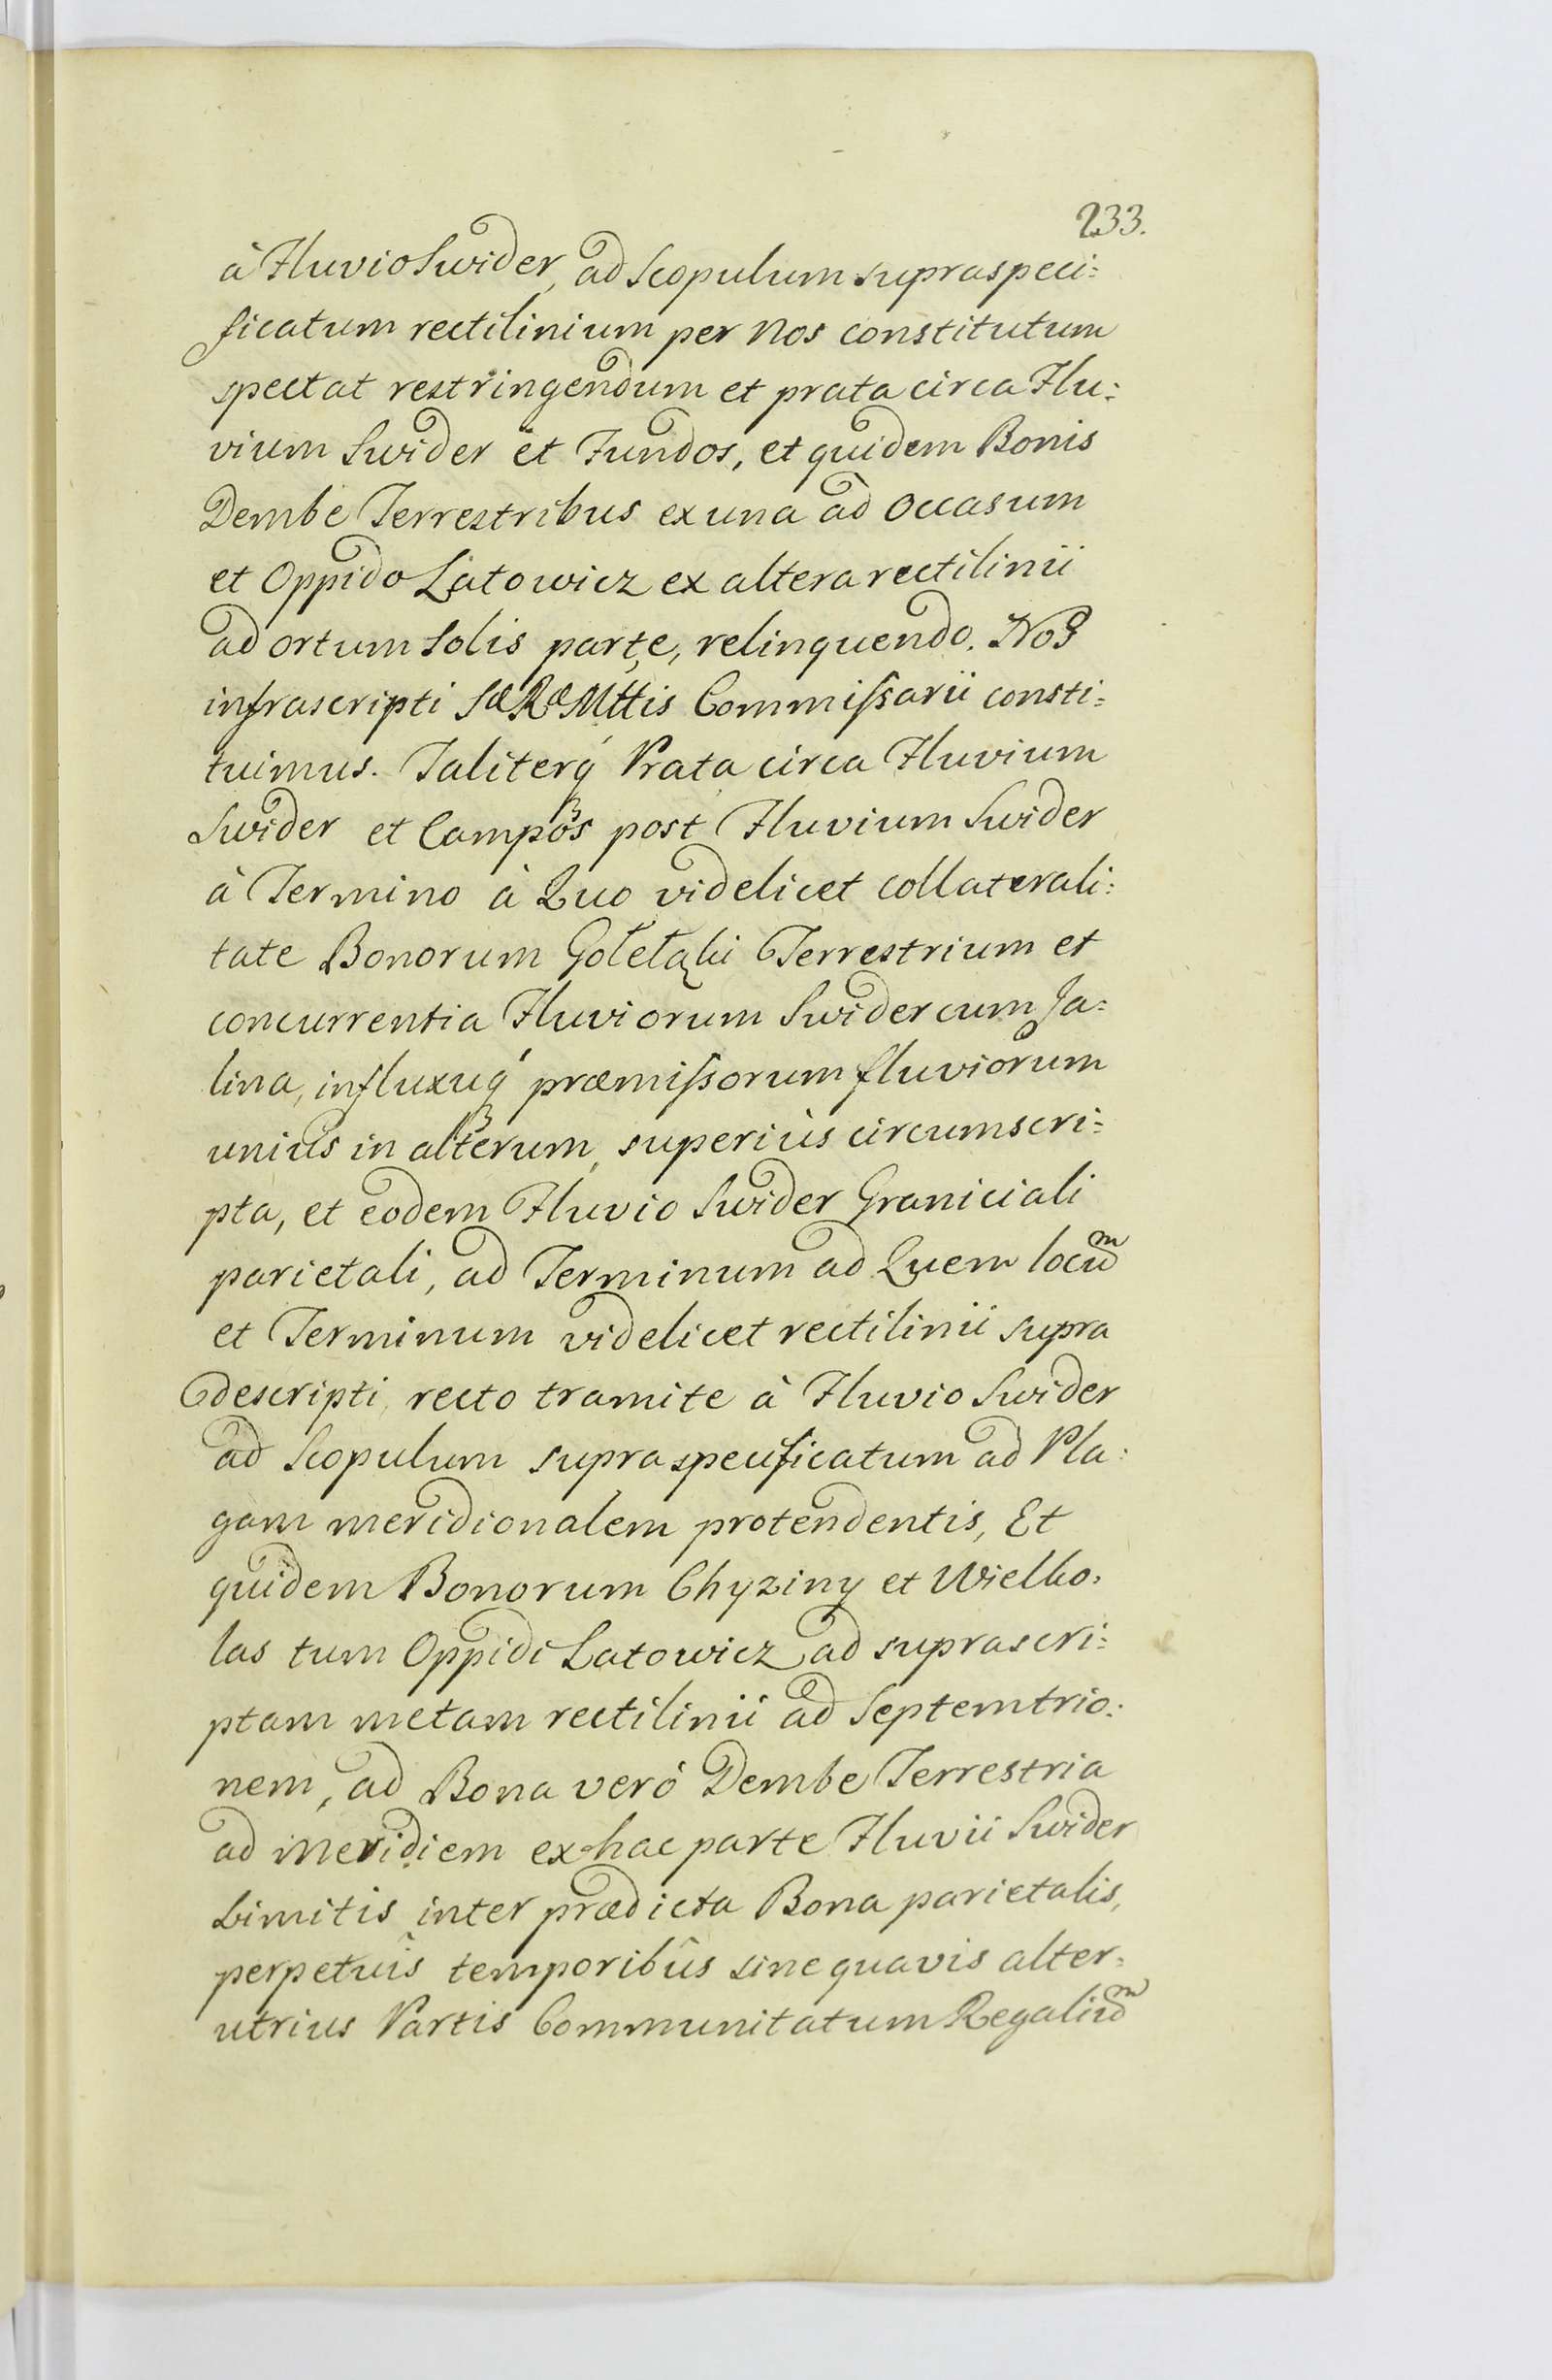 233.
à Fluvio Swider, ad Scopulum supraspeci:
ficatum rectilinium per Nos constitutum
spectat restringendum et prata circa Flu:
vium Swider et Fundos, et quidem Bonis
Dembe Terrestribus ex una ad Occasum
et Oppido Latowicz ex altera rectilinii
ad ortum Solis parte, relinquendo. Nos
infrascripti Sæ Ræ Mttis Commissarii consti:
tuimus. Taliterq́ Prata circa Fluvium
Swider et Campos post Fluvium Swider
à Termino à Quo videlicet collaterali:
tate Bonorum Terrestrium et
concurrentia Fluviorum Swider cum Ja:
lina, influxuq́ præmissorum fluviorum
unius in alterum, superiùs circumscri:
pta, et eodem Fluvio Swider Graniciali
parietali, ad Terminum ad Quem locũ
et Terminum videlicet rectilinii supra
descripti, recto tramite à Fluvio Swider
ad Scopulum supra specificatum ad Pla:
gam meridionalem protendentis, Et
quidem Bonorum Chyziny et Wielko:
las tum Oppidi Latowicz ad suprascri:
ptam metam rectilinii ad Septemtrio:
nem, ad Bona verò Dembe Terrestria
ad Meridiem ex hac parte Fluvii Swider
Limitis inter prædicta Bona parietalis,
perpetuis temporibûs sine quavis alter:
utrius Partis Communitatum Regaliũ